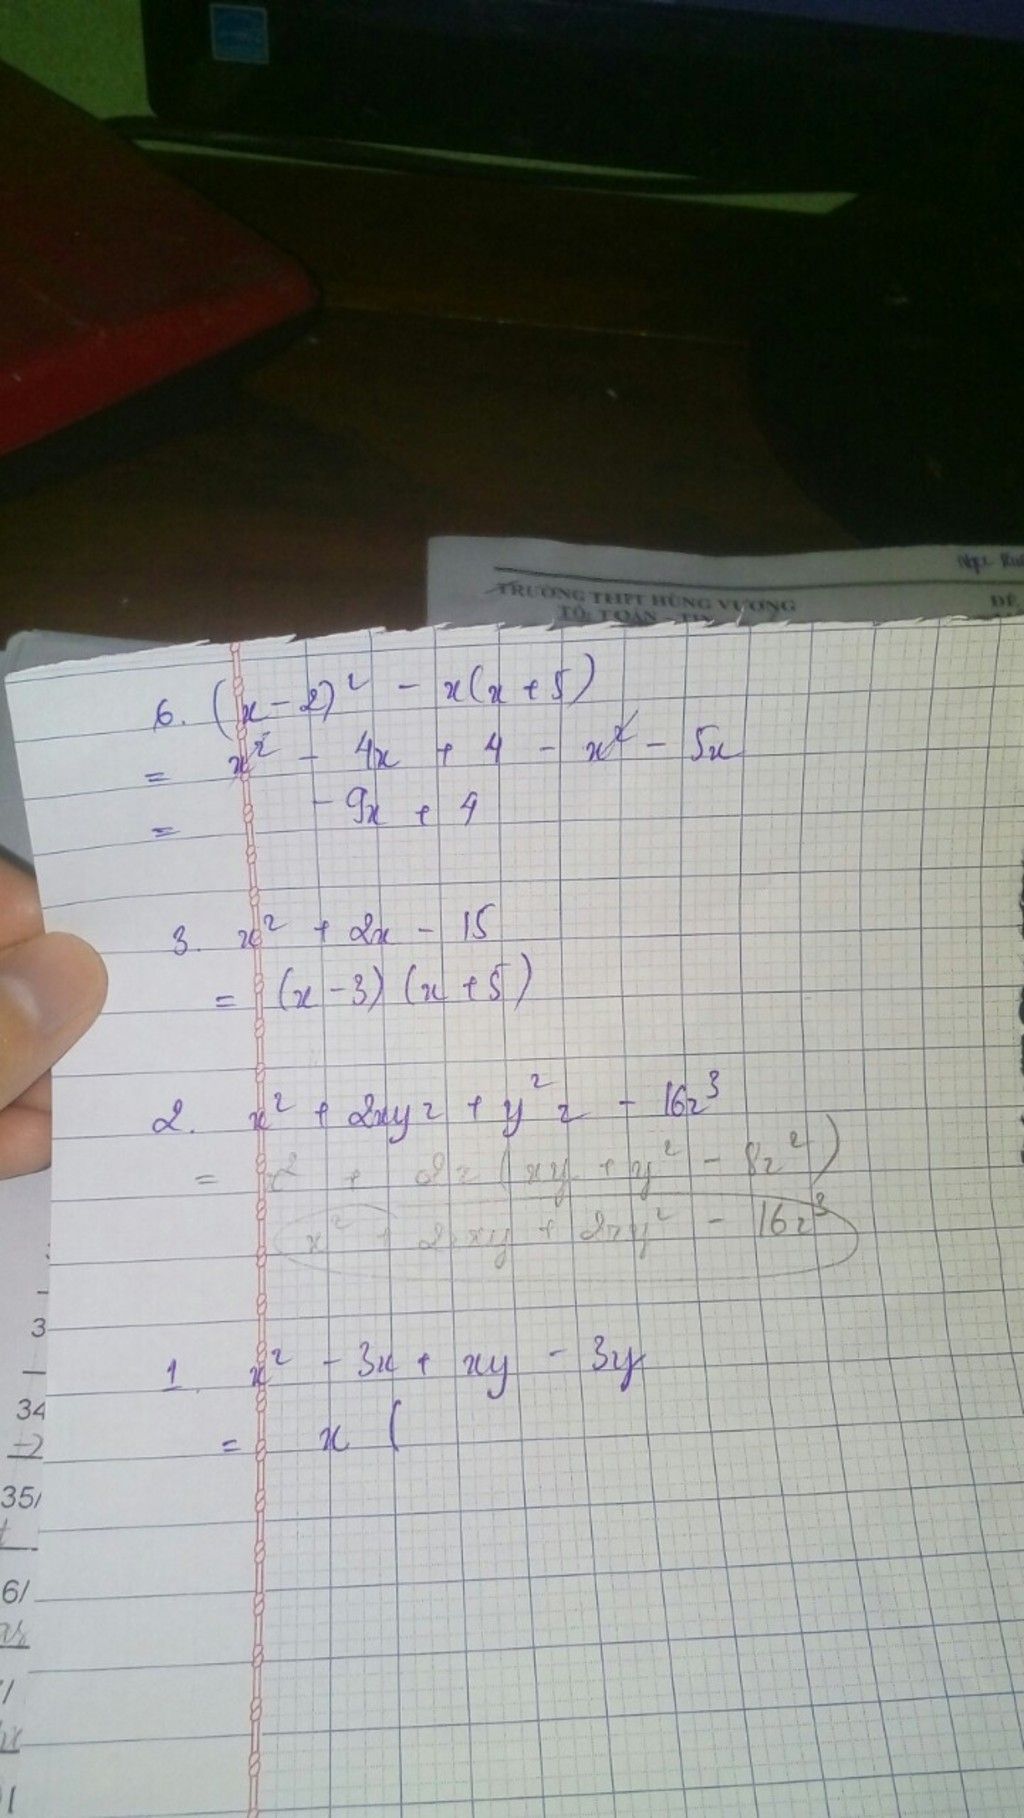 TRƯỜNG THPT HÙNG VƯƠNG
TỔ: TOÁN - TIN
ĐỀ
6. (x - 2)² - x(x + 5)
= x² - 4x + 4 - x² - 5x
= - 9x + 4
3. x² + 2x - 15
= (x - 3) (x + 5)
2. x² + 2xyz + y²z - 16z³
= x² + 2z (xy + y² - 8z²)
x² + 2xy + 2zy² - 16z³
1. x² - 3x + xy - 3y
= x (
3
34
35/
6/